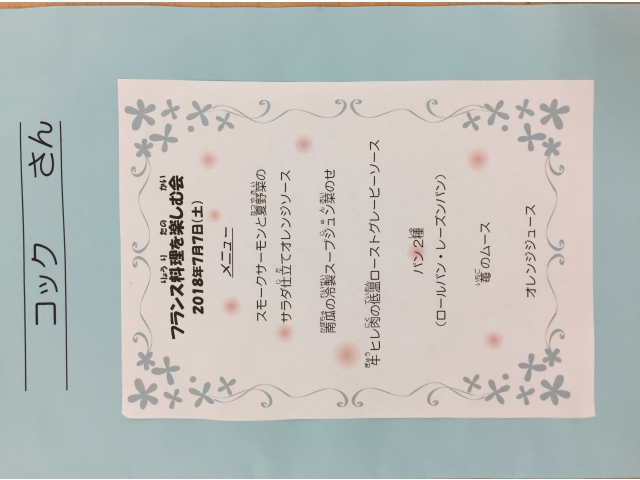 コック さん
フランス料理を楽しむ会
2018年7月7日(土)
メニュー
スモークサーモンと夏野菜の
サラダ仕立てオレンジソース
南瓜の冷製スープジュン菜のせ
牛ヒレ肉の低温ローストグレービーソース
パン2種
(ロールパン・レーズンパン)
苺のムース
オレンジジュース